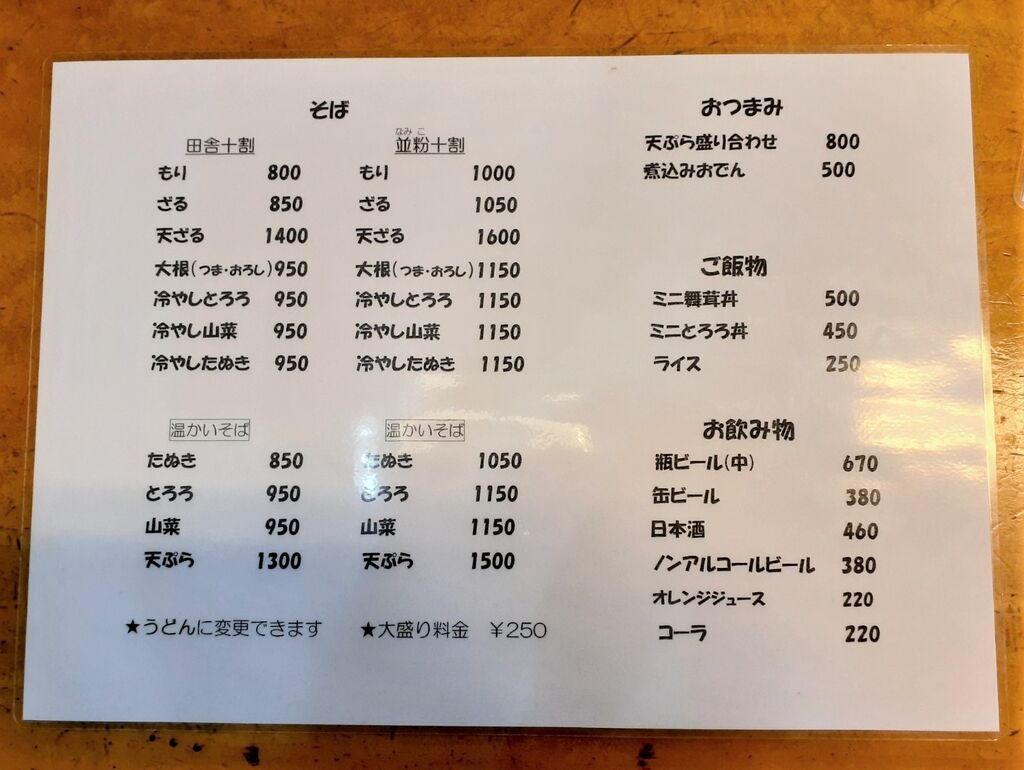 そば
田舎十割
もり 800
ざる 850
天ざる 1400
大根(つま・おろし) 950
冷やしとろろ 950
冷やし山菜 950
冷やしたぬき 950
温かいそば
たぬき 850
とろろ 950
山菜 950
天ぷら 1300
★うどんに変更できます
なみ こ
並粉十割
もり 1000
ざる 1050
天ざる 1600
大根(つま・おろし) 1150
冷やしとろろ 1150
冷やし山菜 1150
冷やしたぬき 1150
温かいそば
たぬき 1050
とろろ 1150
山菜 1150
天ぷら 1500
★大盛り料金 ￥250
おつまみ
天ぷら盛り合わせ 800
煮込みおでん 500
ご飯物
ミニ舞茸丼 500
ミニとろろ丼 450
ライス 250
お飲み物
瓶ビール(中) 670
缶ビール 380
日本酒 460
ノンアルコールビール 380
オレンジジュース 220
コーラ 220